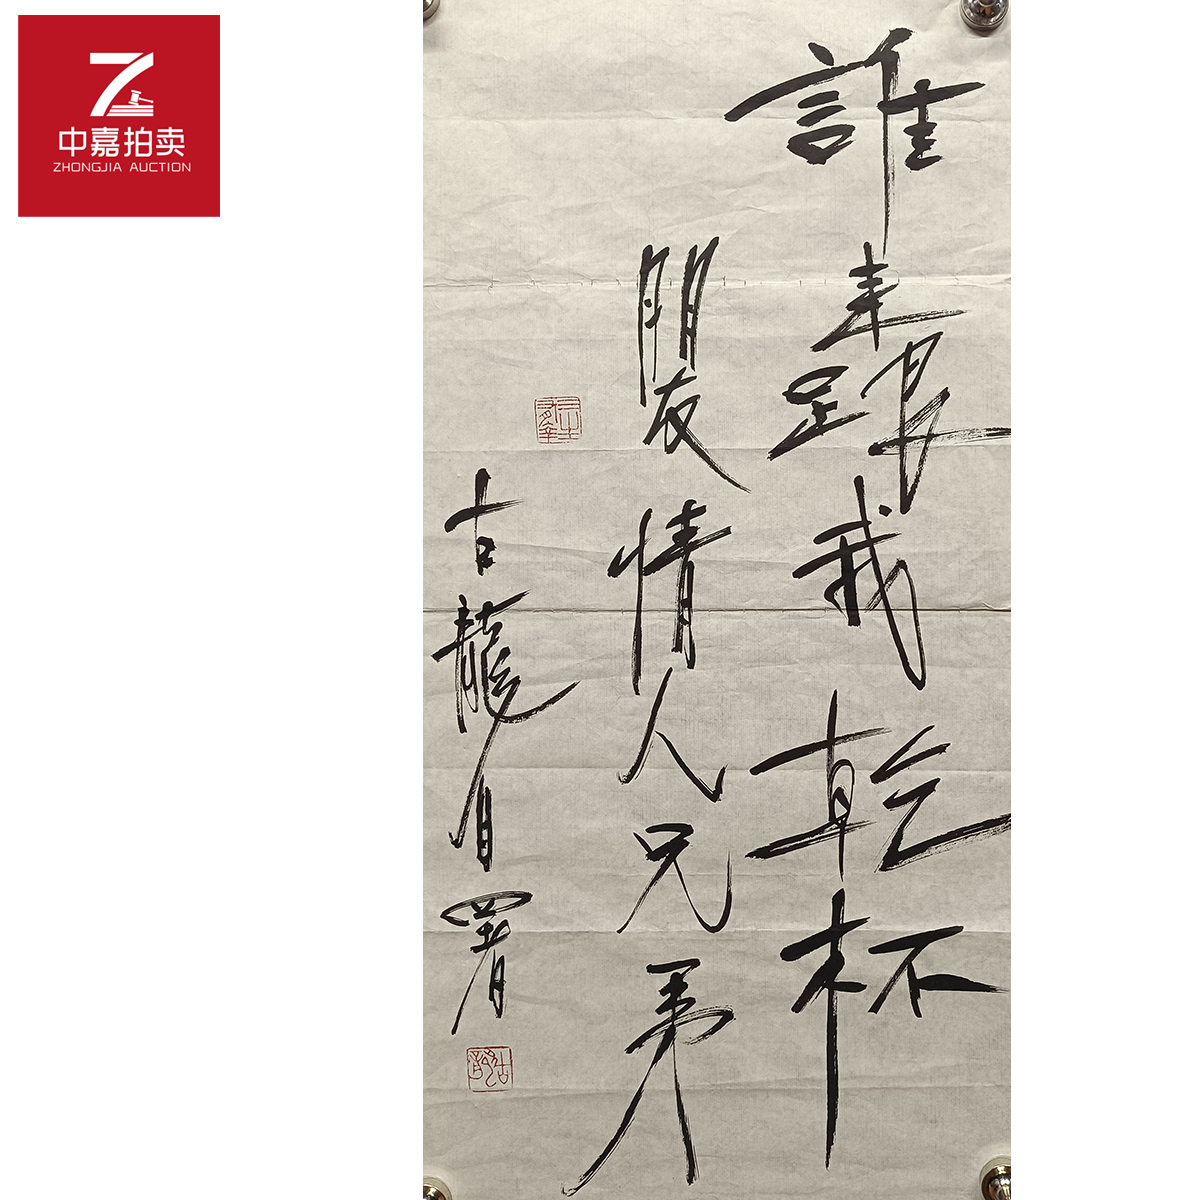 中嘉拍卖
ZHONGJIA AUCTION
誰来跟我乾杯
朋友情人兄弟
古龍自署